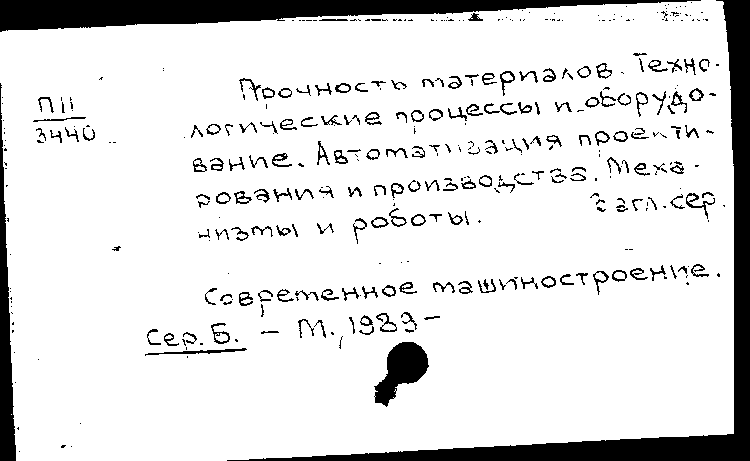 П 11
3440
Прочность материалов. Техно-
логические процессы и оборудо-
вание. Автоматизация проекти-
рования и производства. Меха-
низмы и роботы. Загл. сер.
Современное машиностроение.
Сер. Б. – М., 1989 –